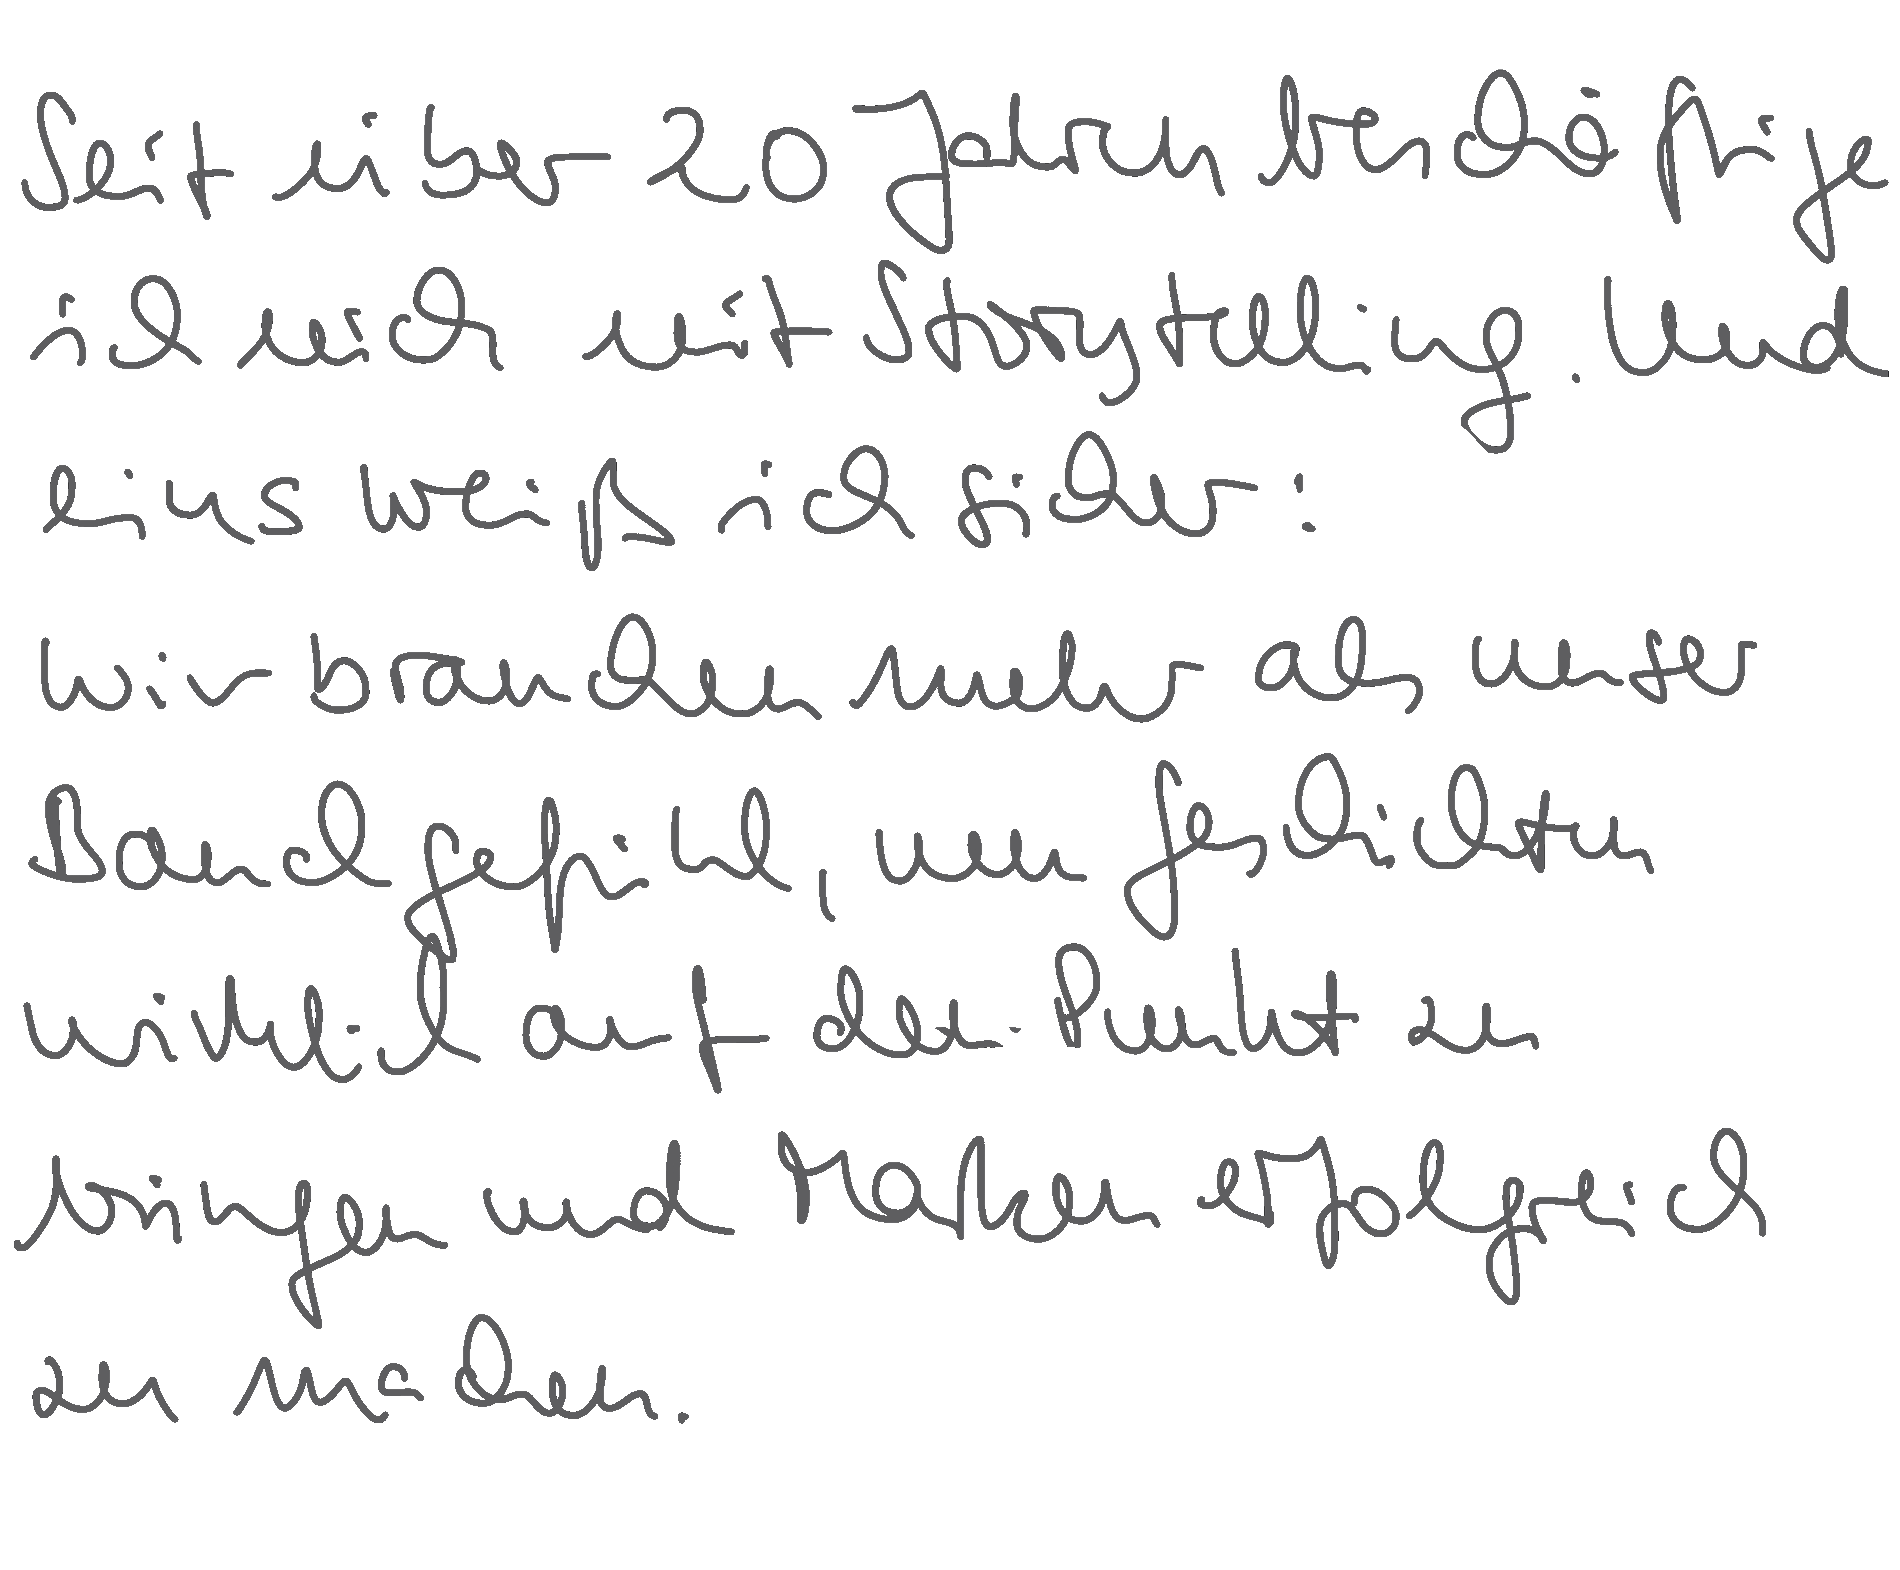 Seit über 20 Jahren beschäftige
ich mich mit Storytelling. Und
eins weiß ich sicher:
Wir brauchen mehr als unser
Bauchgefühl, um Geschichten
wirklich auf den Punkt zu
bringen und Marken erfolgreich
zu machen.